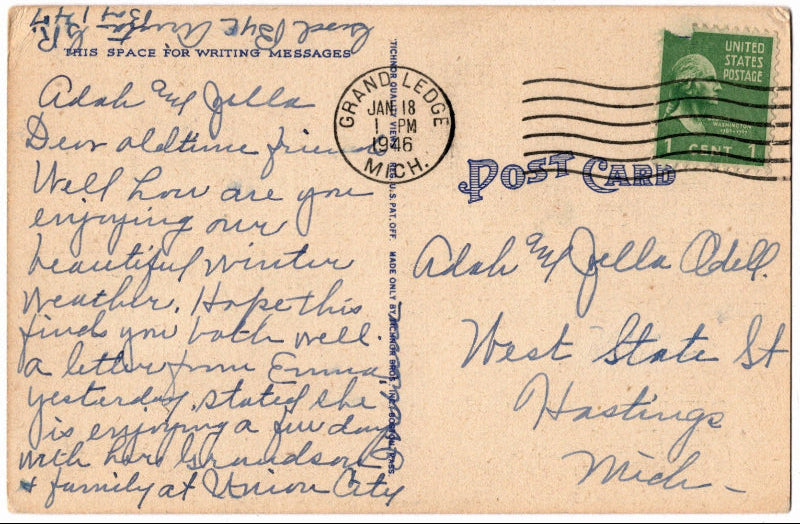 Good Bye
THIS SPACE FOR WRITING MESSAGES
Adah and Zella
Dear oldtime friends
Well how are you
enjoying our
beautiful winter
weather. Hope this
finds you both well.
a letter from Emma
yesterday, stated she
is enjoying a few days
with her Grandson
& family at Union City
TICHNOR QUALITY VIEWS REG. U.S. PAT. OFF. MADE ONLY BY TICHNOR BROS. INC. BOSTON, MASS.
GRAND LEDGE
JAN 18
1 PM
1946
MICH.
UNITED
STATES
POSTAGE
WASHINGTON
1 CENT 1
POST CARD
Adah and Zella Odell.
West State St
Hastings
Mich